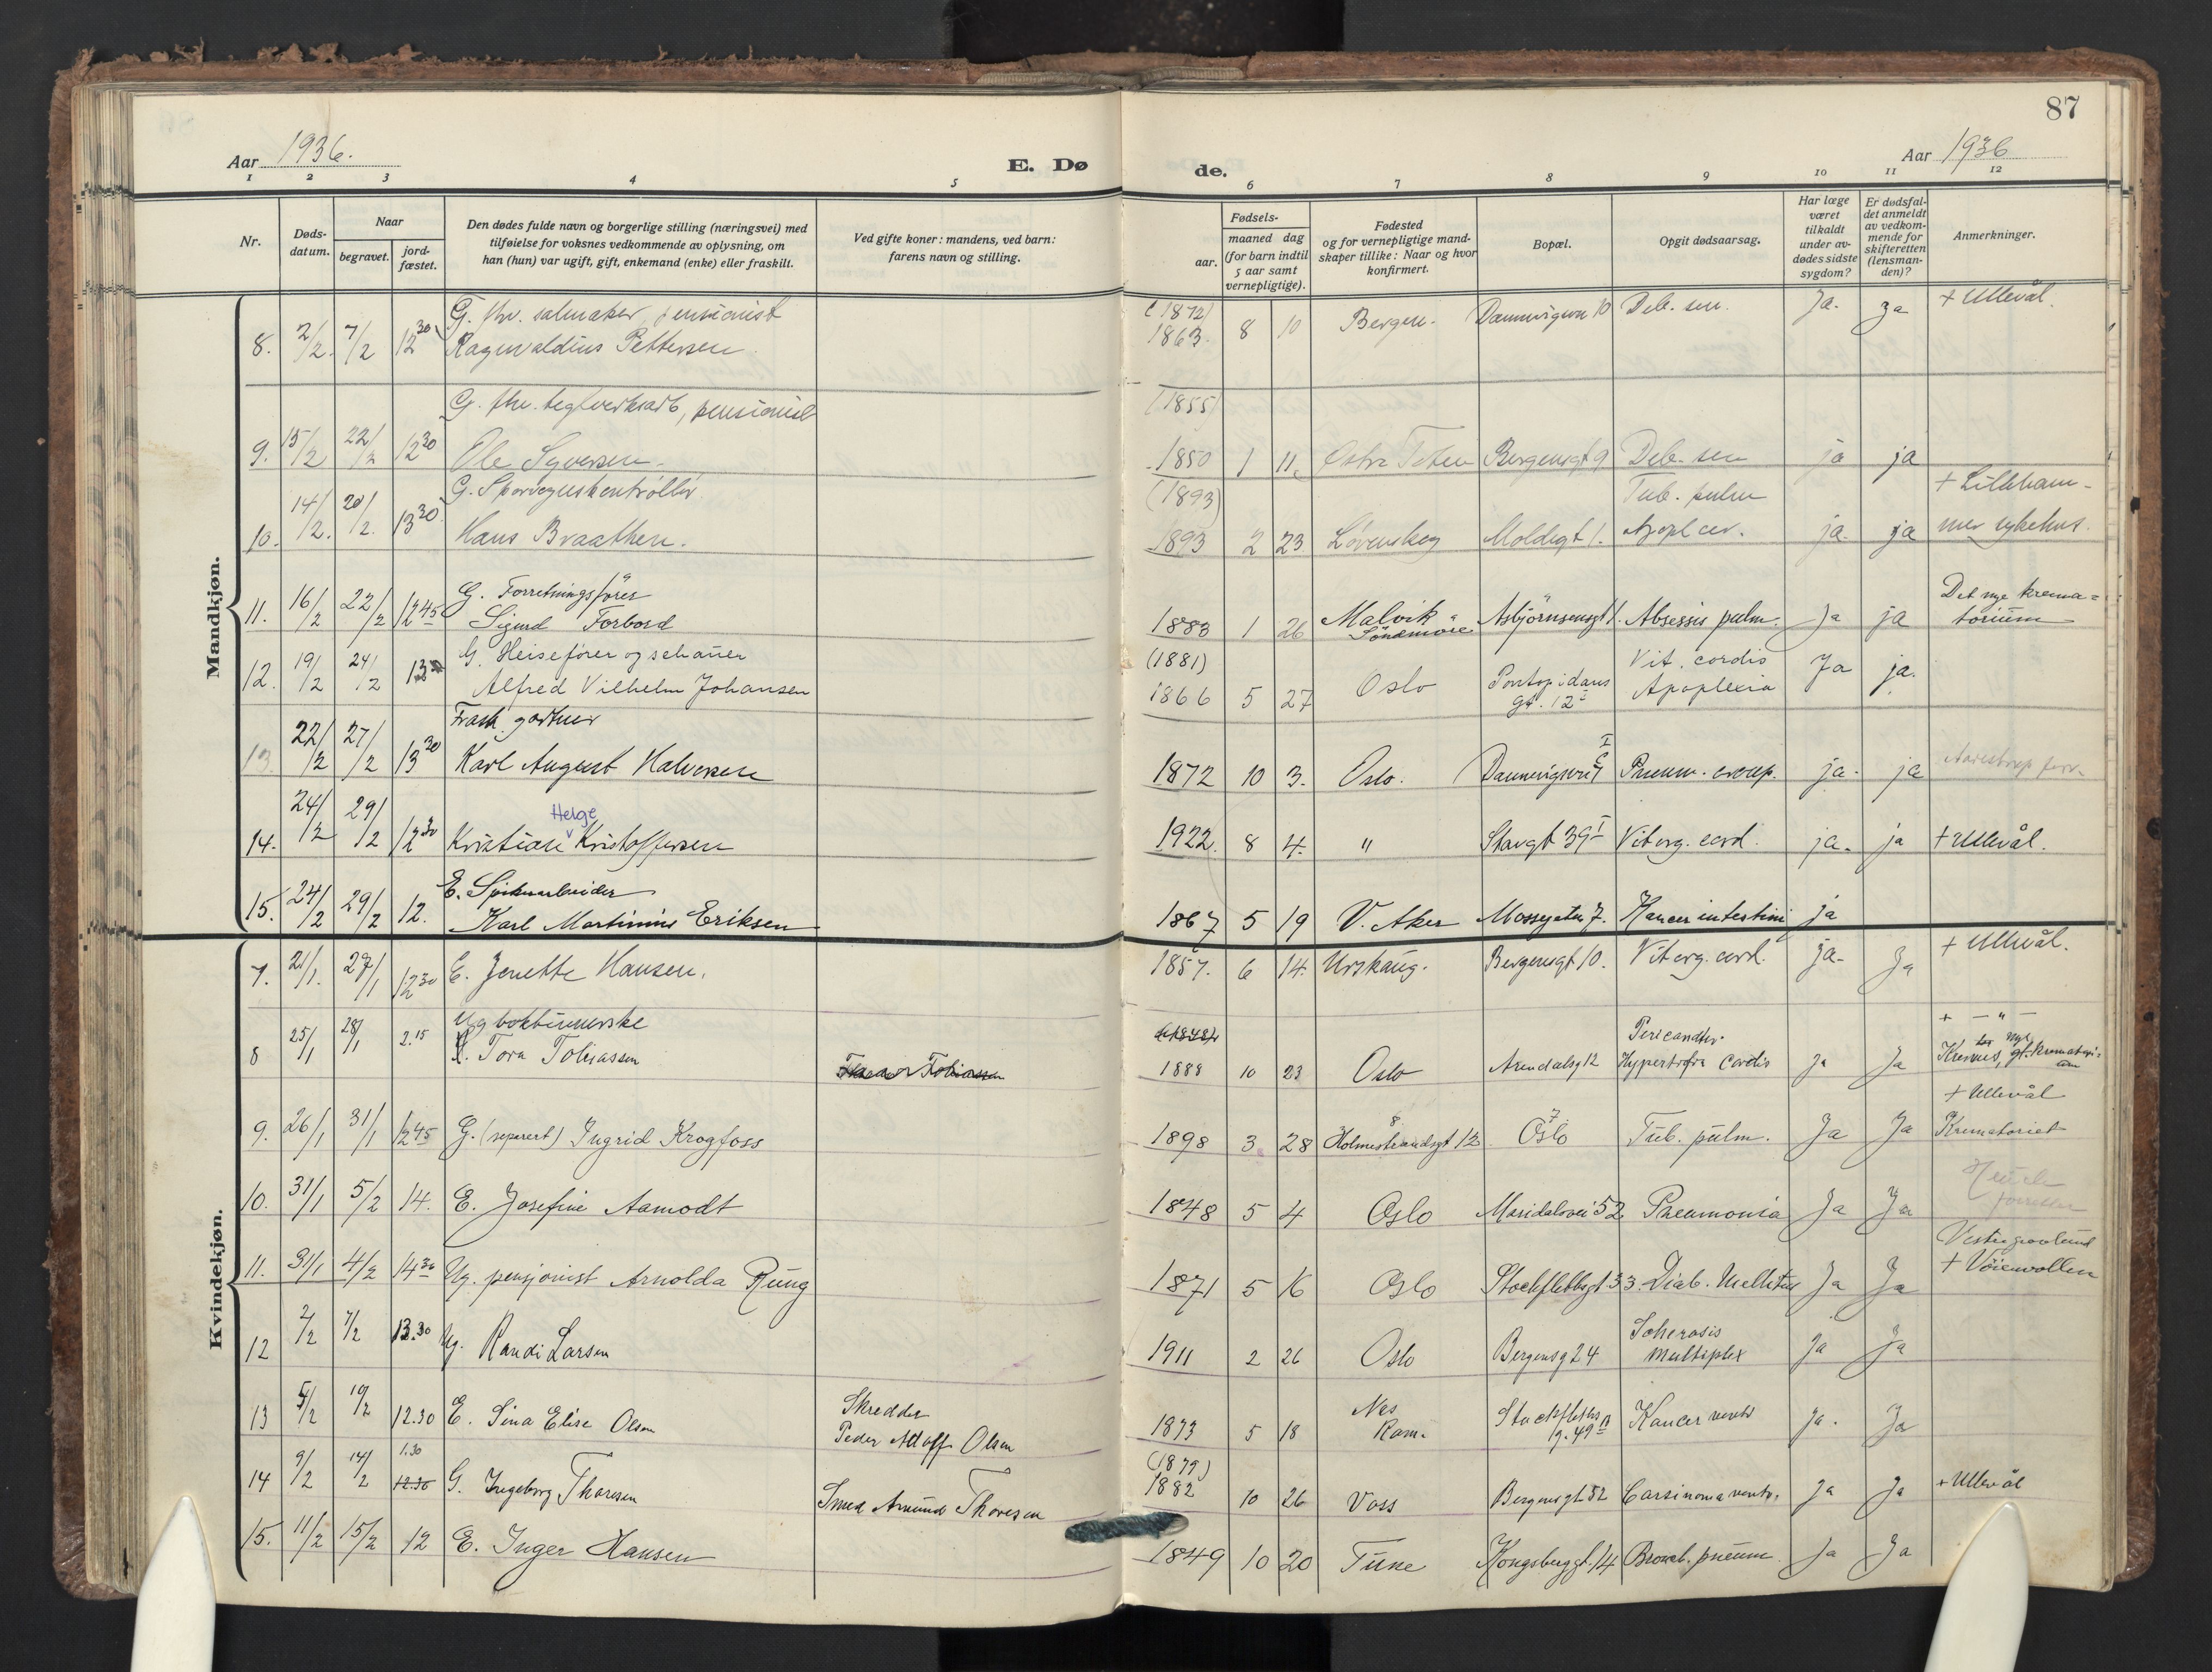 87
Aar 1936.
E. Dø de.
Aar 1936
1 2 3 4 5 6 7 8 9 10 11 12
Nr.
Døds-
datum.
Naar
begravet.
jord-
fæstet.
Den dødes fulde navn og borgerlige stilling (næringsvei) med
tilføielse for voksnes vedkommende av oplysning, om
han (hun) var ugift, gift, enkemand (enke) eller fraskilt.
Ved gifte koner: mandens, ved barn:
farens navn og stilling.
Fødsels-
aar.
maaned dag
(for barn indtil
5 aar samt
vernepligtige).
Fødested
og for vernepligtige mand-
skaper tillike: Naar og hvor
konfirmert.
Bopæl.
Opgit dødsaarsag.
Har læge
været
tilkaldt
under av-
dødes sidste
sygdom?
Er dødsfal-
det anmeldt
av vedkom-
mende for
skifteretten
(lensman-
den)?
Anmerkninger.
Mandkjøn.
G. fhv. salmaker, pensionist (1872) + Ullevål.
8. 2/2. 7/2 12 30 Ragnvaldius Pettersen 1863. 8 10 Bergen. Dannevigsvn 10 Deb. sen. Ja. ja
G. fhv. teglverksarb, pensionist (1855)
9. 15/2 22/2 12 30 Ole Syversen 1850 1 11. Østre Toten Bergensgt 9 Deb. sen ja ja
G. Sporvegskontrollør (1893) Tub. pulm + Lilleham-
10. 14/2. 20/2. 13 30 Hans Braathen. 1893 2 23 Lørenskog Moldegt 1. Apopl cer. ja. ja mer sykehus.
G. Forretningsfører Det nye krema-
11. 16/2 22/2 12 45 Sigurd Forbord 1883 1 26 Malvik Asbjörnsensgt 1. Absessis pulm. Ja ja torium
Söndmöre
G. Heisefører og (1881) Vit. cordis
12. 19/2 24/2 13 Alfred Vilhelm Johansen 1866 5 27 Oslo Pontopidans Apoplexia Ja ja.
gt. 12
Frask. gartner
13. 22/2 27/2 13 30 Karl August Halvorsen 1872 10 3. Oslo. Pneum. croup. ja. ja
Helge
14. 24/2 29/2 12 30 Kristian Kristoffersen 1922. 8 4. " Stavgt 39 I Vit org. cord. ja. ja + Ullevål.
E.
15. 24/2 29/2 12. Karl Martinius Eriksen 1867 5 19 V. Aker Mossegaten 7. Kancer intestini ja
Kvindekjøn.
7. 21/1. 27/1 12 30 E. Jenette Hansen. 1857. 6 14. Urskaug. Bergensgt 10. Vit org. cord. ja. Ja + Ullevål.
Ug bokbinnerske + — " —
8 25/1 28/1 2.15 Tora Tobiassen 1888 10 23 Oslo Arendalsg 12 Hypertrofia Cordis Ja Ja
+ Ullevål
9. 26/1 31/1 12 45 G. (seperert) Ingrid Krogfoss 1898 3 28 Holmestrandsgt 12 Oslo Tub. pulm. Ja Ja Krematoriet
10. 31/1 5/2 14. E. Josefine Aamodt 1848 5 4 Oslo Maridalsvei 52 Pneumonia Ja Ja
Vestre gravlund
11. 31/1 4/2 14 30 Ug. pensjonist Arnolda Rung 1871 5 16 Oslo Stockflethsgt 33. Diab. Mellitus Ja Ja + Vöienvollen
12 2/2 7/2 13.30 Ug. Randi Larsen 1911 2 26 Oslo Bergensg 24 Scherosis Ja Ja
multiplex
Skredder Nes
13 5/2 10/2 12.30 E. Sina Elise Olsen Peder Adolf Olsen 1873 5 18 Rom. Stockfleths Kancer ventr Ja. Ja
g. 49
1.30 (1879)
14 9/2 14/2 12.30 G. Ingeborg Thoresen Smed Amund Thoresen 1882 10 26 Voss Bergensgt 52 Carsinoma ventr. Ja Ja + Ullevål
15. 11/2 15/2 12 E. Inger Hansen 1849 10 20 Tune Kongsberggt. 14 Bronch. pneum. Ja Ja